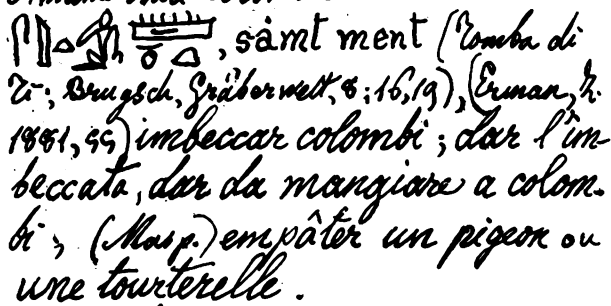 , sȧmt ment (Tomba di
Ti; Brugsch, Gräberwelt, 8; 16,19), (Erman, Z.
1881, 55) imbeccar colombi; dar l'im-
beccata, dar da mangiare a colom-
bi, (Masp.) empâter un pigeon ou
une tourterelle.